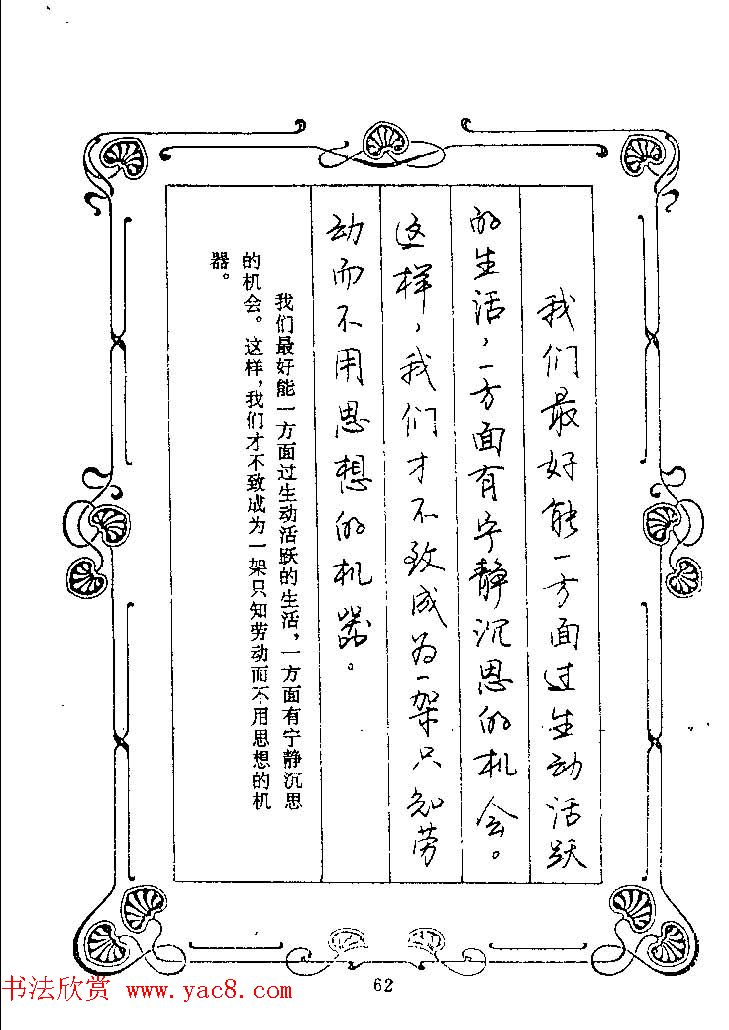 我们最好能一方面过生动活跃
的生活，一方面有宁静沉思的机会。
这样，我们才不致成为一架只知劳
动而不用思想的机器。
我们最好能一方面过生动活跃的生活，一方面有宁静沉思
的机会。这样，我们才不致成为一架只知劳动而不用思想的机
器。
62
书法欣赏 www.yac8.com